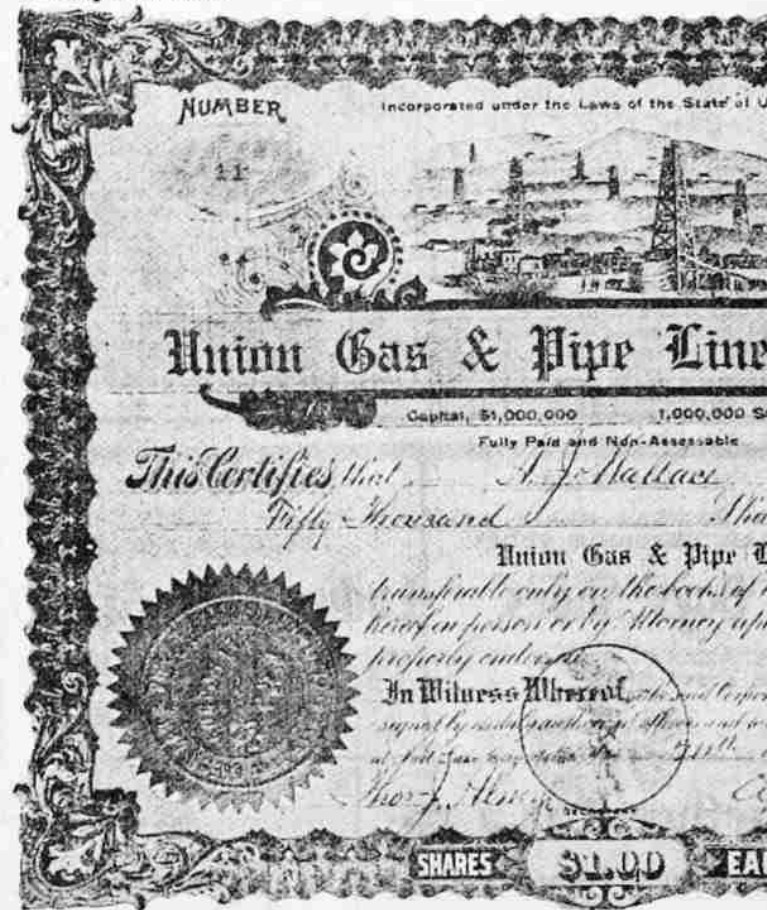 NUMBER
Incorporated under the Laws of the State of U
11
Union Gas & Pipe Line
Capital, $1,000,000 1,000,000 S
Fully Paid and Non-Assessable
This Certifies that A. J. Wallace
Fifty Thousand Sha
Union Gas & Pipe L
transferable only on the books of t
hereof in person or by Attorney upo
properly endorsed.
In Witness Whereof, the said Corpor
signed by its duly authorized officers and to be
at Salt Lake City, Utah this
Thos. J.
SECRETARY
SHARES $1.00 EA